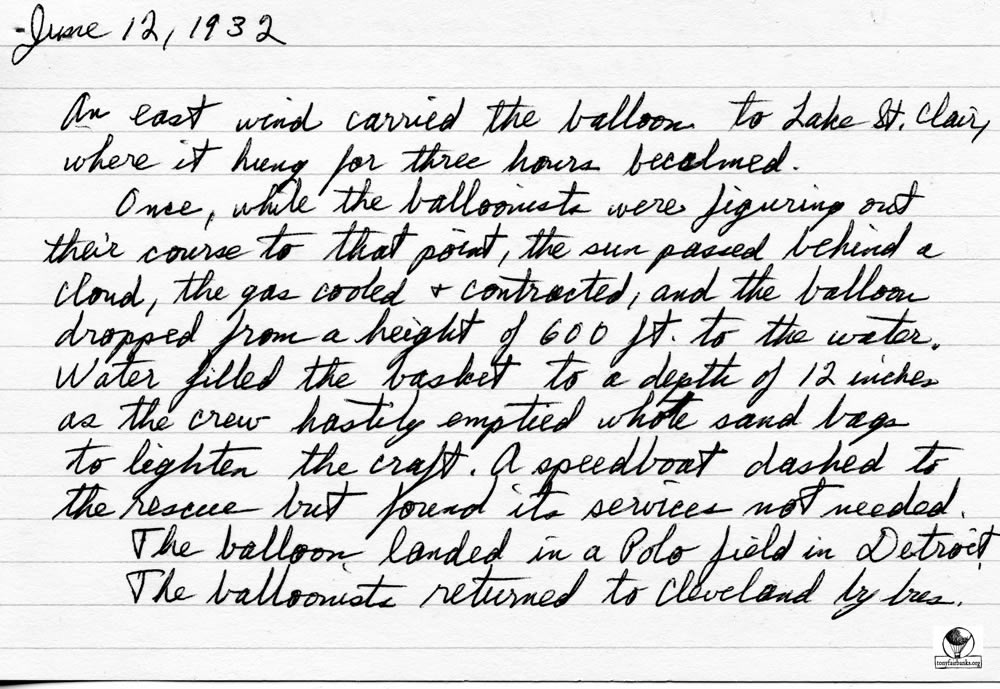 -June 12, 1932
An east wind carried the balloon to Lake St. Clair,
where it hung for three hours becalmed.
Once, while the balloonists were figuring out
their course to that point, the sun passed behind a
cloud, the gas cooled & contracted, and the balloon
dropped from a height of 600 ft. to the water.
Water filled the basket to a depth of 12 inches
as the crew hastily emptied whole sand bags
to lighten the craft. A speedboat dashed to
the rescue but found its services not needed.
The balloon landed in a Polo field in Detroit.
The balloonists returned to Cleveland by bus.
tonyfairbanks.org